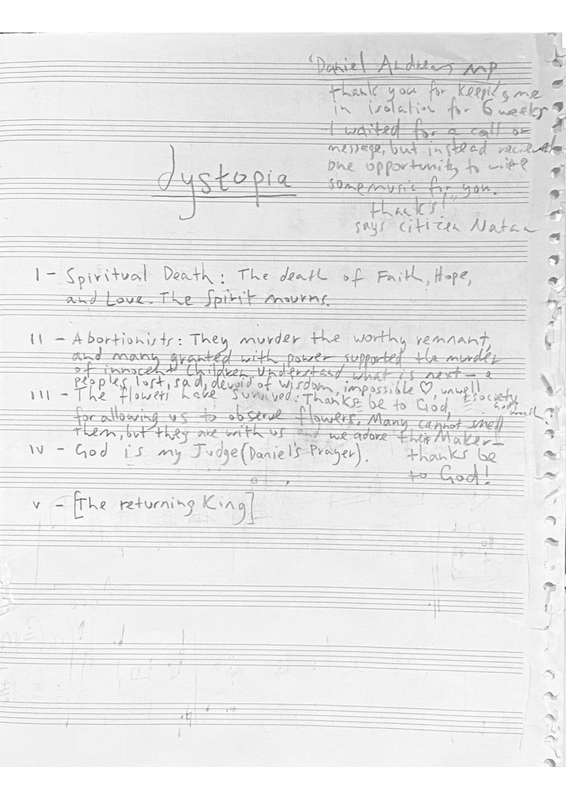 'Daniel Andrews MP
thank you for keeping me
in isolation for 6 weeks
I waited for a call or
message, but instead recieved
one opportunity to write
some music for you.
thanks!"
says citizen Natan
dystopia
I - Spiritual Death: The death of Faith, Hope,
and Love. The Spirit mourns.
II - Abortionists: They murder the worthy remnant,
and many granted with power supported the murder
of innocent children. Understand what is next - a
peoples lost, sad, devoid of wisdom, impossible ♡, unwell
society
III - The flowers have survived: Thanks be to God,
for allowing us to observe flowers. Many cannot smell
them, but they are with us and we adore their Maker-
thanks be
to God!
IV - God is my Judge (Daniel's Prayer).
V - [The returning King]